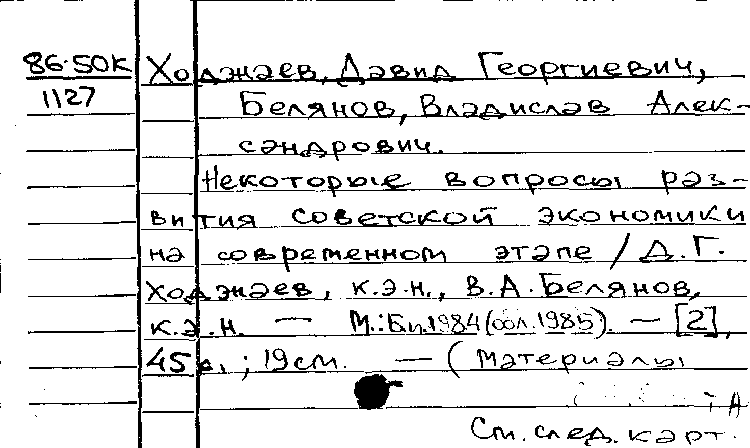 86-50К Ходжаев, Давид Георгиевич,
1127
Белянов, Владислав Алек-
сандрович.
Некоторые вопросы раз-
вития советской экономики
на современном этапе / Д.Г.
Ходжаев, к.э.н., В.А. Белянов,
к.э.н. — М.: Б.и. 1984 (обл. 1985). — [2],
45 с.; 19 см. — (Материалы
См. след. карт.